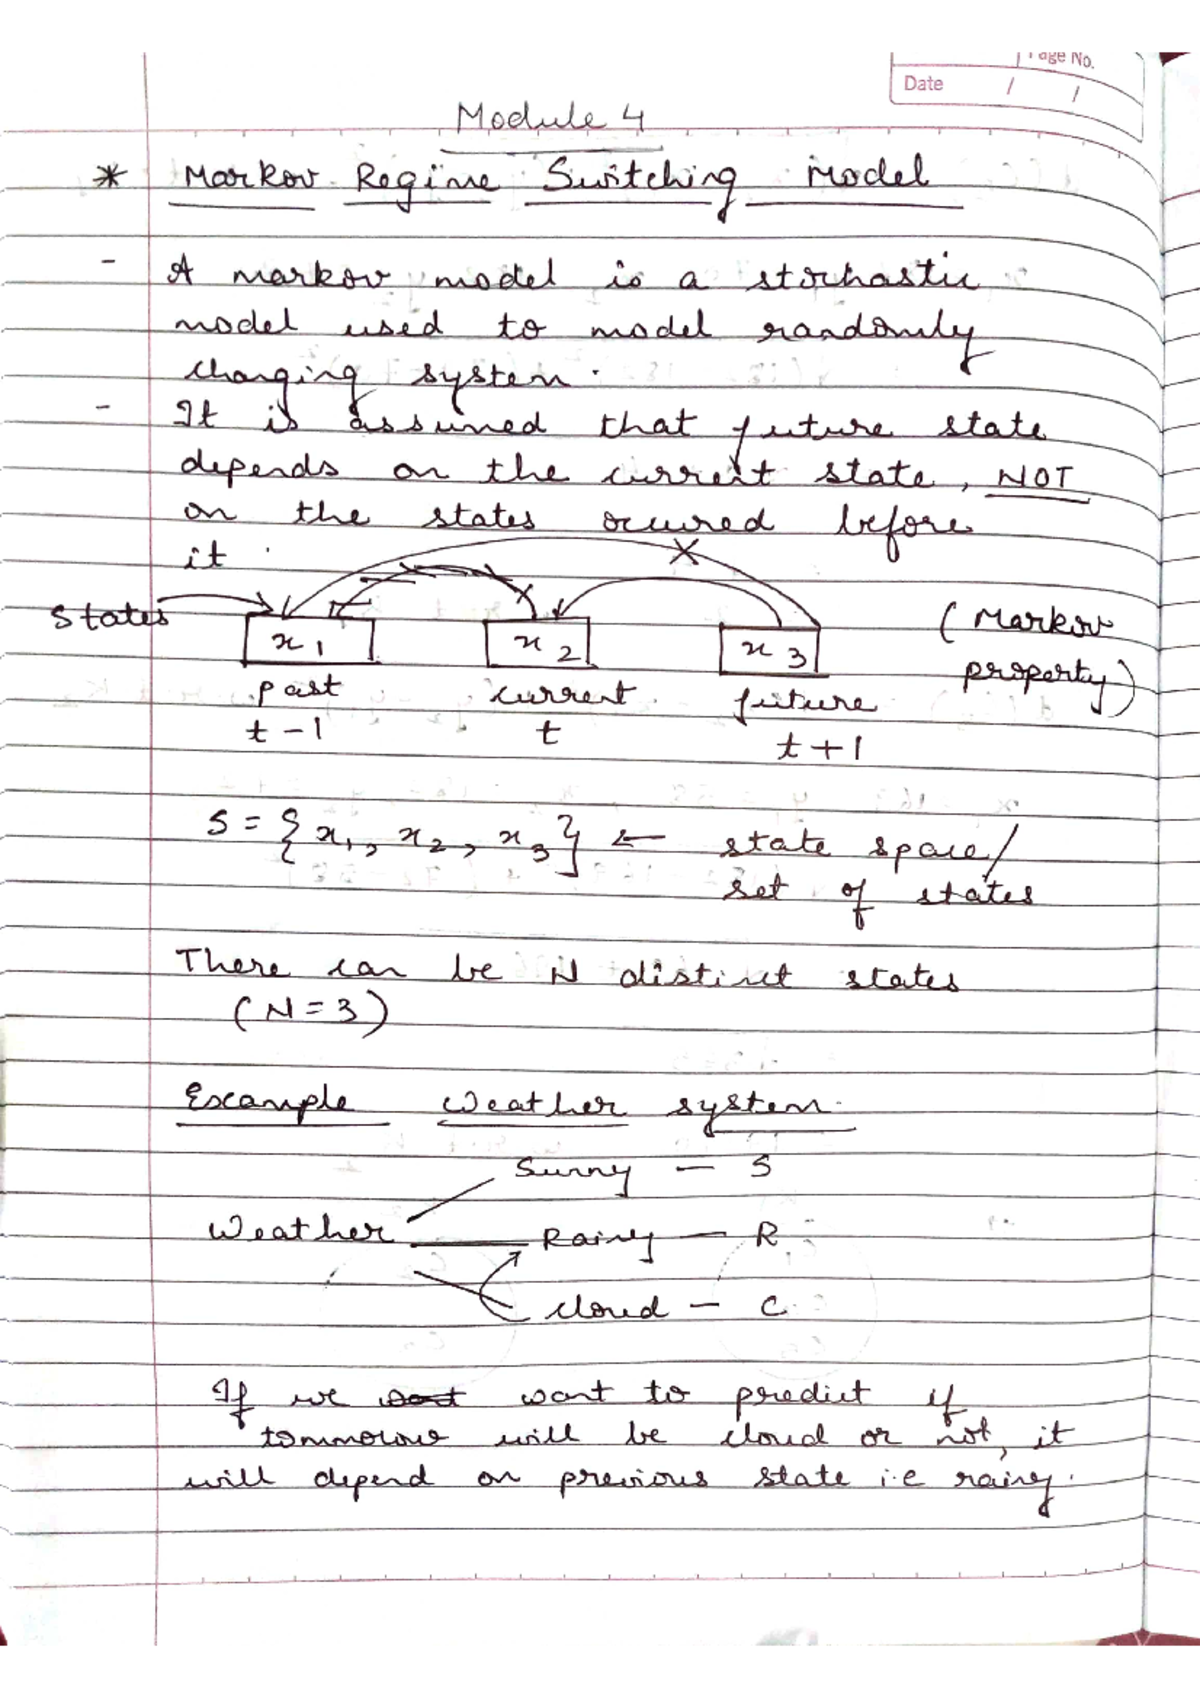 Page No.
Date / /
Module 4
* Markov Regime Switching Model
- A markov model is a stochastic
model used to model randomly
changing system.
- It is assumed that future state
depends on the current state, NOT
on the states occured before
it.
States
x1 x2 x3 (Markov
property)
past current future
t-1 t t+1
S = {x1, x2, x3} ← state space/
set of states
There can be N distinct states
(N=3)
Example Weather system.
Sunny - S
Weather Rainy - R
cloud - C
If we want to predict if
tommorow will be cloud or not, it
will depend on previous state i.e rainy.